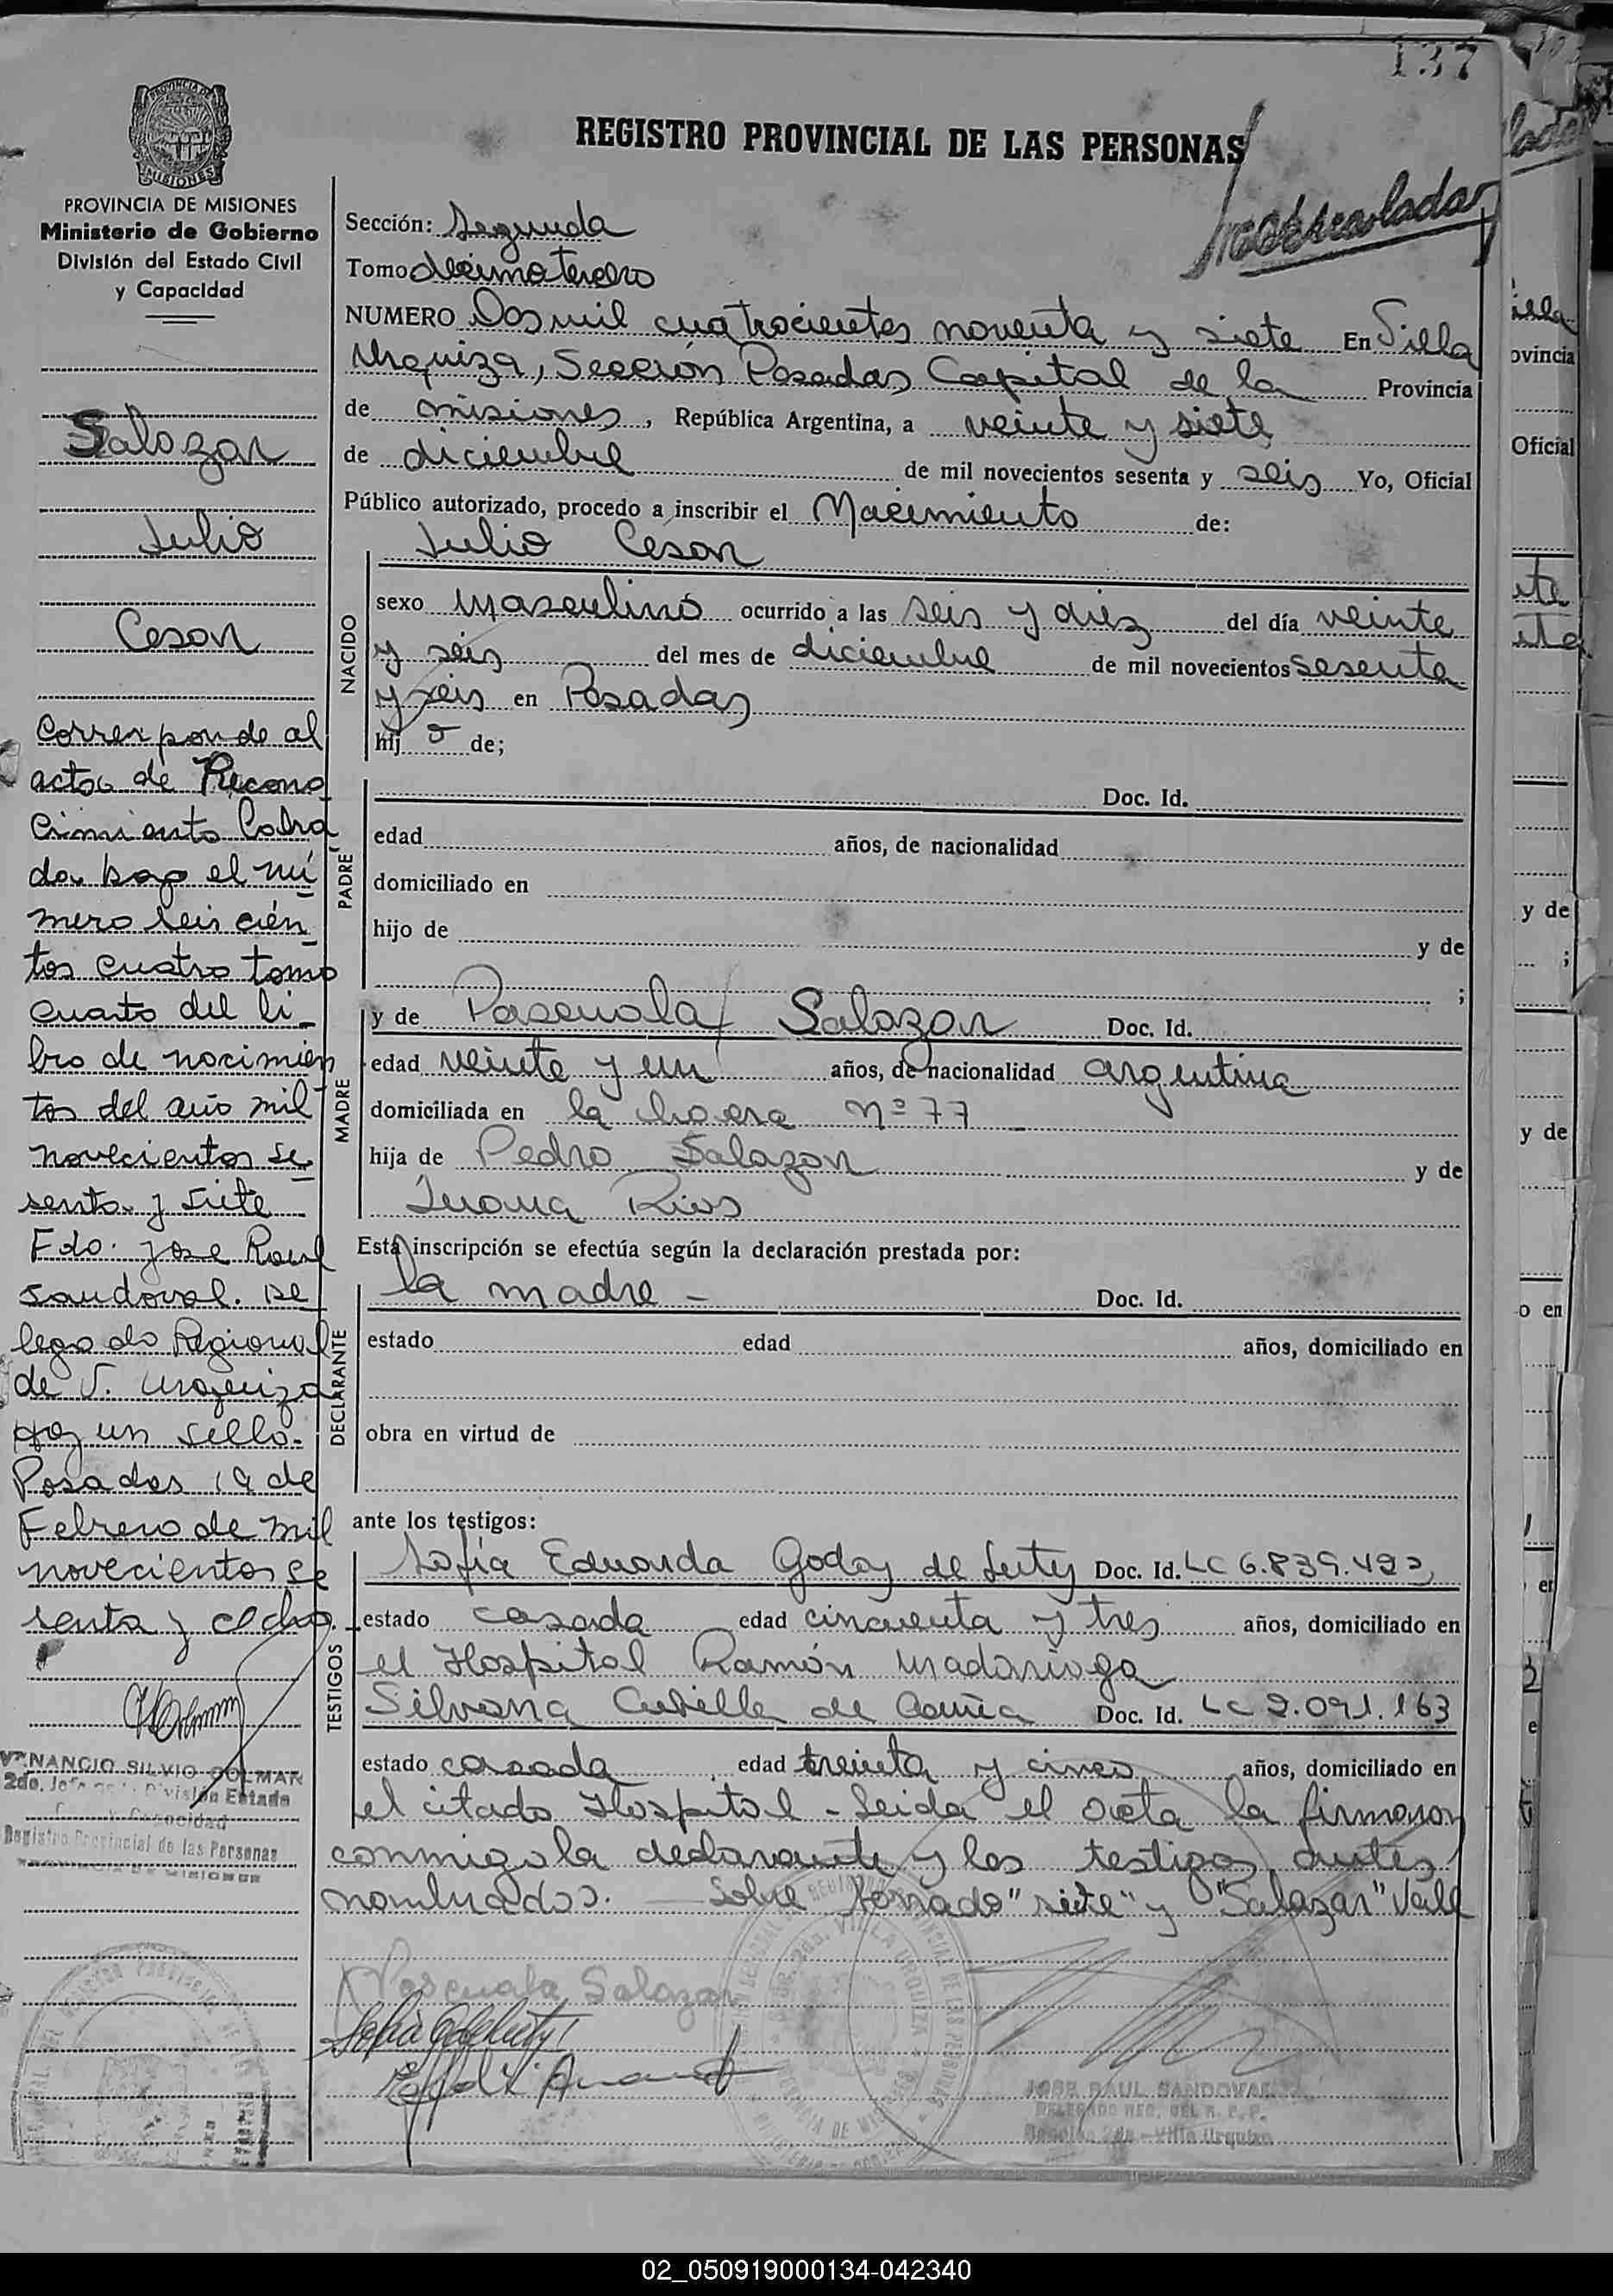 137
REGISTRO PROVINCIAL DE LAS PERSONAS
PROVINCIA DE MISIONES
MISIONES
PROVINCIA DE MISIONES
Ministerio de Gobierno
División del Estado Civil
y Capacidad
Salazar
Julio
Cesar
Corresponde al
acta de Recono
cimiento Labra
da bajo el nú
mero seis cien
tos cuatro tomo
cuarto del li_
bro de nacimien
tos del año mil
novecientos se
senta y siete
Fdo. Jose Raul
Sandoval. De
legado Regional
de V. Urquiza
Hay un sello.
Posadas 19 de
Febrero de mil
novecientos se
senta y ocho.
VENANCIO SILVIO GOLMAN
2do. Jefe División Estado
y Capacidad
Registro Provincial de las Personas
PROVINCIA DE MISIONES
Sección: Segunda
Tomo decimo tercero
NUMERO Dos mil cuatrocientos noventa y siete En Villa
Urquiza, Sección Posadas Capital de la Provincia
de misiones, República Argentina, a veinte y siete
de diciembre de mil novecientos sesenta y seis Yo, Oficial
Público autorizado, procedo a inscribir el Nacimiento de:
NACIDO
Julio Cesar
sexo masculino ocurrido a las seis y diez del día veinte
y seis del mes de diciembre de mil novecientos sesenta
y seis en Posadas
hij o de;
PADRE
Doc. Id.
edad años, de nacionalidad
domiciliado en
hijo de y de
;
MADRE
y de Pascuala Salazar Doc. Id.
edad veinte y un años, de nacionalidad argentina
domiciliada en la chacra nº 77
hija de Pedro Salazar y de
Juana Rios
Esta inscripción se efectúa según la declaración prestada por:
DECLARANTE
la madre - Doc. Id.
estado edad años, domiciliado en
obra en virtud de
ante los testigos:
TESTIGOS
Sofía Eduarda Godoy de Doc. Id. LC 6.839.492
estado casada edad cincuenta y tres años, domiciliado en
el Hospital Ramón Madariaga
Silvana de Doc. Id. LC 2.091.163
estado casada, edad treinta y cinco años, domiciliado en
el citado Hospital - Leida el acta la firmaron
conmigo la declarante y los testigos antes
nombrados. — Sobre borrado "siete" y "Salazar" Vale
Pascuala Salazar
JOSE RAUL SANDOVAL
DELEGADO REG. DEL R. P. P.
Sección 2da - Villa Urquiza
Oficial
y de
y de
02_050919000134-042340